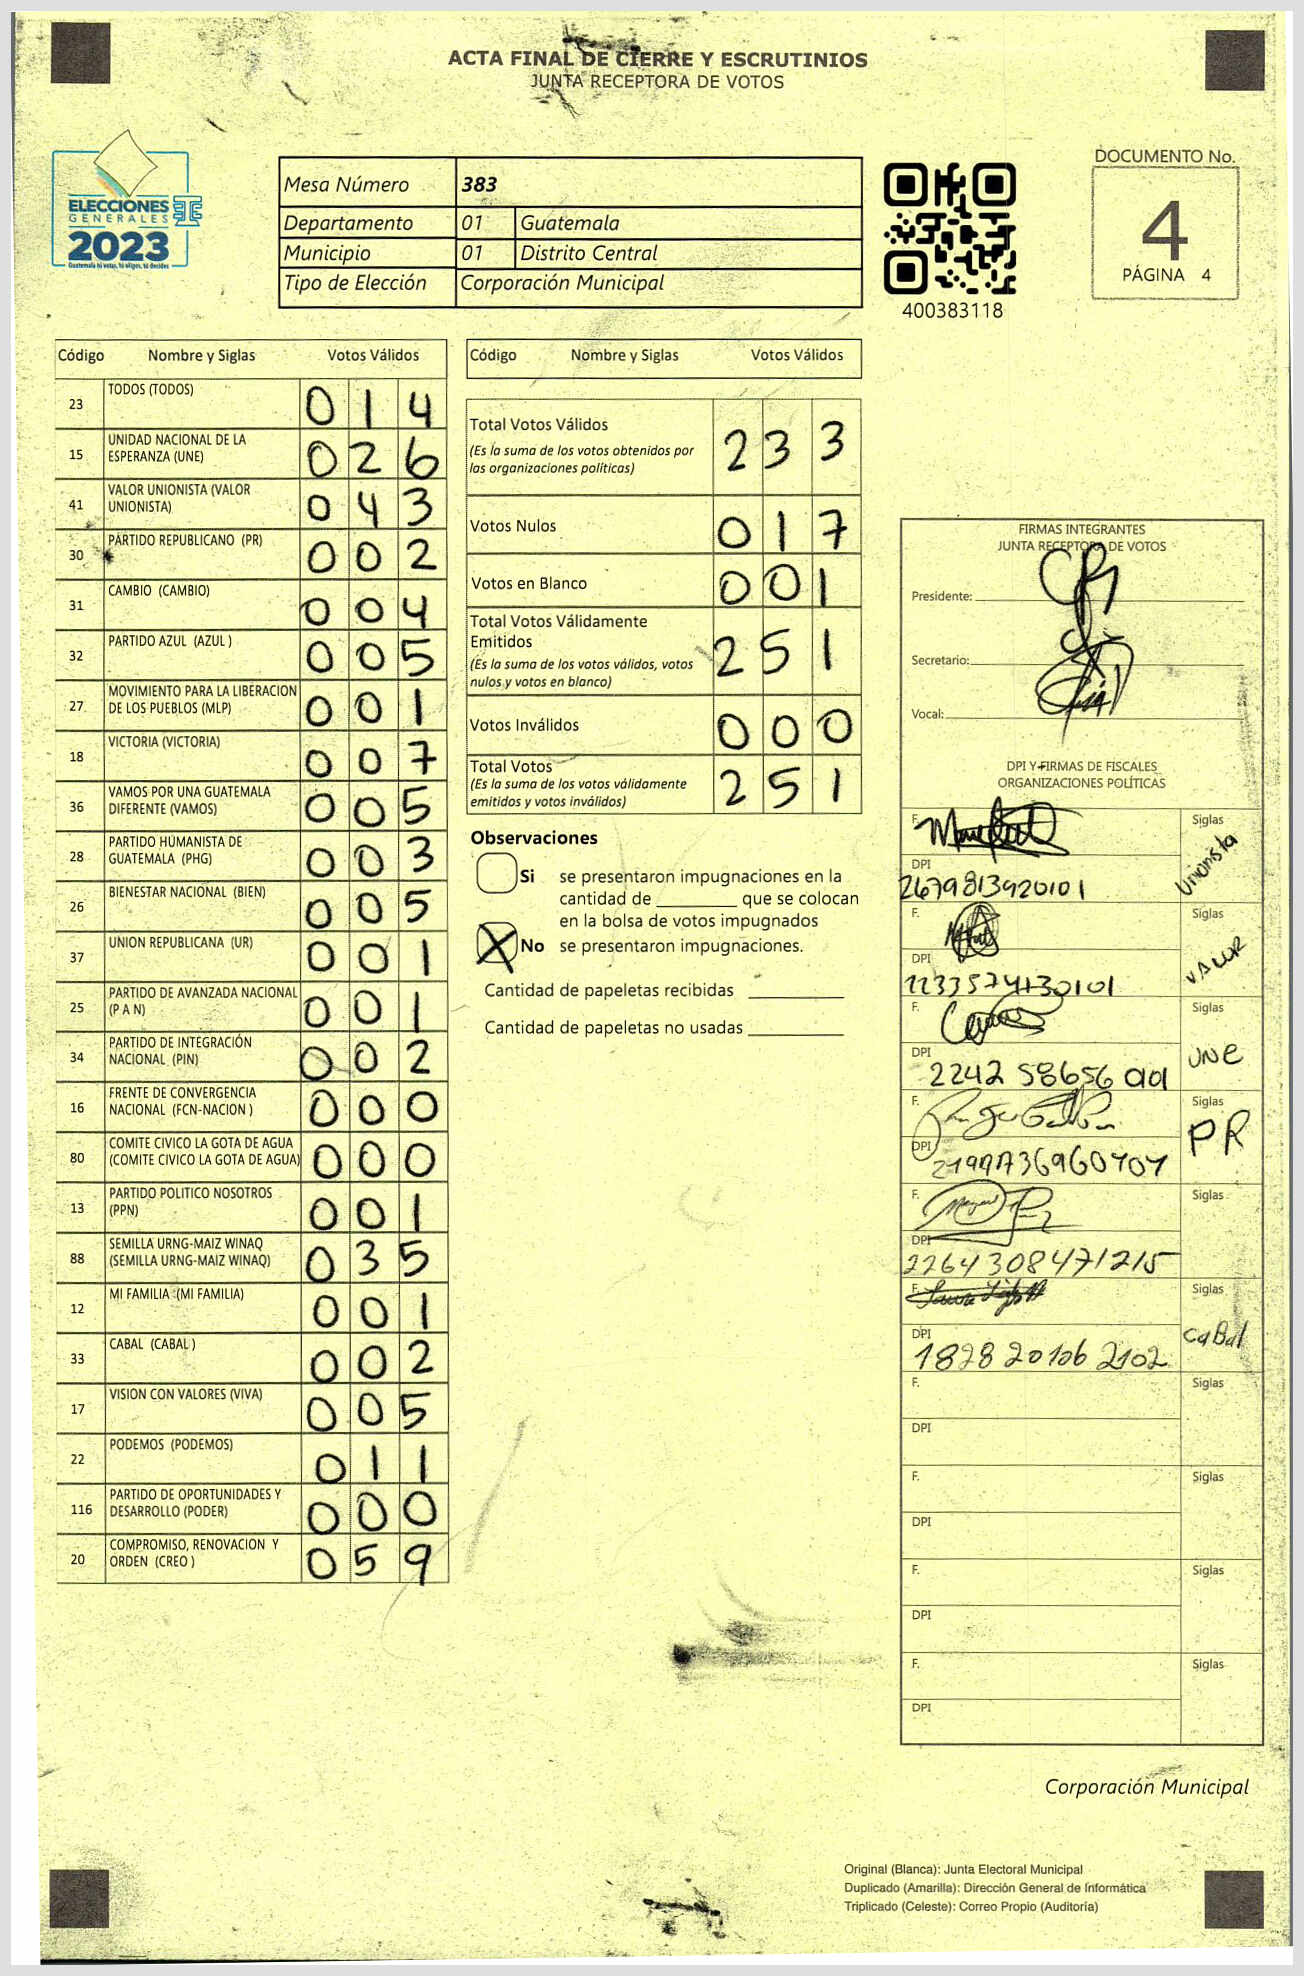 ACTA FINAL DE CIERRE Y ESCRUTINIOS
JUNTA RECEPTORA DE VOTOS
ELECCIONES
GENERALES
2023
Guatemala tú votas, tú eliges, tú decides
Mesa Número 383
Departamento 01 Guatemala
Municipio 01 Distrito Central
Tipo de Elección Corporación Municipal
400383118
DOCUMENTO No.
4
PÁGINA 4
Código Nombre y Siglas Votos Válidos
23 TODOS (TODOS) 0 1 4
15 UNIDAD NACIONAL DE LA
ESPERANZA (UNE) 0 2 6
41 VALOR UNIONISTA (VALOR
UNIONISTA) 0 4 3
30 PARTIDO REPUBLICANO (PR) 0 0 2
31 CAMBIO (CAMBIO) 0 0 4
32 PARTIDO AZUL (AZUL ) 0 0 5
27 MOVIMIENTO PARA LA LIBERACION
DE LOS PUEBLOS (MLP) 0 0 1
18 VICTORIA (VICTORIA) 0 0 7
36 VAMOS POR UNA GUATEMALA
DIFERENTE (VAMOS) 0 0 5
28 PARTIDO HUMANISTA DE
GUATEMALA (PHG) 0 0 3
26 BIENESTAR NACIONAL (BIEN) 0 0 5
37 UNION REPUBLICANA (UR) 0 0 1
25 PARTIDO DE AVANZADA NACIONAL
(P A N) 0 0 1
34 PARTIDO DE INTEGRACIÓN
NACIONAL (PIN) 0 0 2
16 FRENTE DE CONVERGENCIA
NACIONAL (FCN-NACION ) 0 0 0
80 COMITE CIVICO LA GOTA DE AGUA
(COMITE CIVICO LA GOTA DE AGUA) 0 0 0
13 PARTIDO POLITICO NOSOTROS
(PPN) 0 0 1
88 SEMILLA URNG-MAIZ WINAQ
(SEMILLA URNG-MAIZ WINAQ) 0 3 5
12 MI FAMILIA (MI FAMILIA) 0 0 1
33 CABAL (CABAL ) 0 0 2
17 VISION CON VALORES (VIVA) 0 0 5
22 PODEMOS (PODEMOS) 0 1 1
116 PARTIDO DE OPORTUNIDADES Y
DESARROLLO (PODER) 0 0 0
20 COMPROMISO, RENOVACION Y
ORDEN (CREO ) 0 5 9
Código Nombre y Siglas Votos Válidos
Total Votos Válidos 2 3 3
(Es la suma de los votos obtenidos por
las organizaciones políticas)
Votos Nulos 0 1 7
Votos en Blanco 0 0 1
Total Votos Válidamente
Emitidos 2 5 1
(Es la suma de los votos válidos, votos
nulos y votos en blanco)
Votos Inválidos 0 0 0
Total Votos 2 5 1
(Es la suma de los votos válidamente
emitidos y votos inválidos)
Observaciones
Si se presentaron impugnaciones en la
cantidad de ________ que se colocan
en la bolsa de votos impugnados
X No se presentaron impugnaciones.
Cantidad de papeletas recibidas ________
Cantidad de papeletas no usadas ________
FIRMAS INTEGRANTES
JUNTA RECEPTORA DE VOTOS
Presidente:
Secretario:
Vocal:
DPI Y FIRMAS DE FISCALES
ORGANIZACIONES POLÍTICAS
F. Siglas
Unionista
DPI
2679813920101
F. Siglas
VALOR
DPI
F. Siglas
UNE
DPI
2242 58656 0101
F. Siglas
PR
DPI
F. Siglas
DPI
2264308471215
F. Siglas
CaBal
DPI
1828 20106 2102
F. Siglas
DPI
F. Siglas
DPI
F. Siglas
DPI
F. Siglas
DPI
Corporación Municipal
Original (Blanca): Junta Electoral Municipal
Duplicado (Amarilla): Dirección General de Informática
Triplicado (Celeste): Correo Propio (Auditoría)